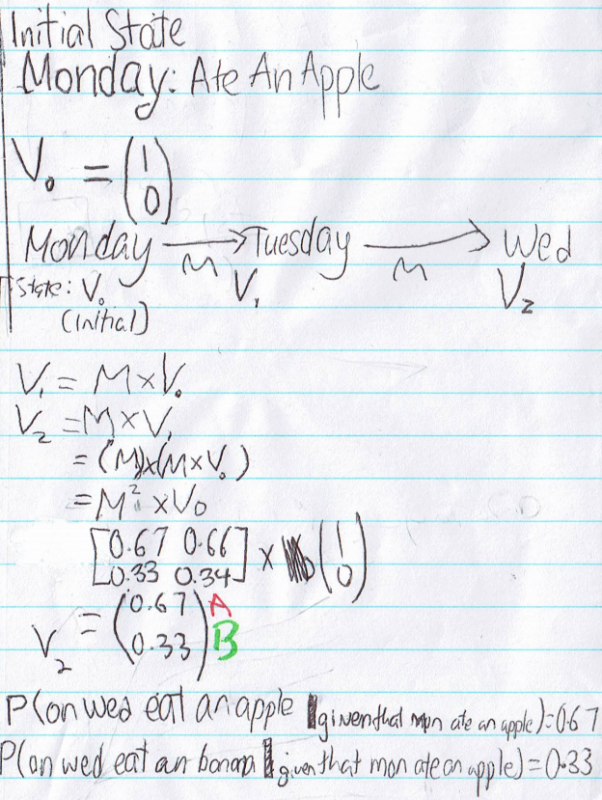 Initial State
Monday: Ate An Apple
V₀ = (1 0)
Monday → Tuesday → Wed
M M
State: V₀ V₁ V₂
(initial)
V₁ = M×V₀
V₂ = M×V₁
= (M)×(M×V₀)
= M² ×V₀
[0.67 0.66
0.33 0.34] × (1 0)
V₂ = (0.67 0.33) A B
P(on wed eat an apple | given that mon ate an apple)=0.67
P(on wed eat an banana | given that mon ate an apple)=0.33